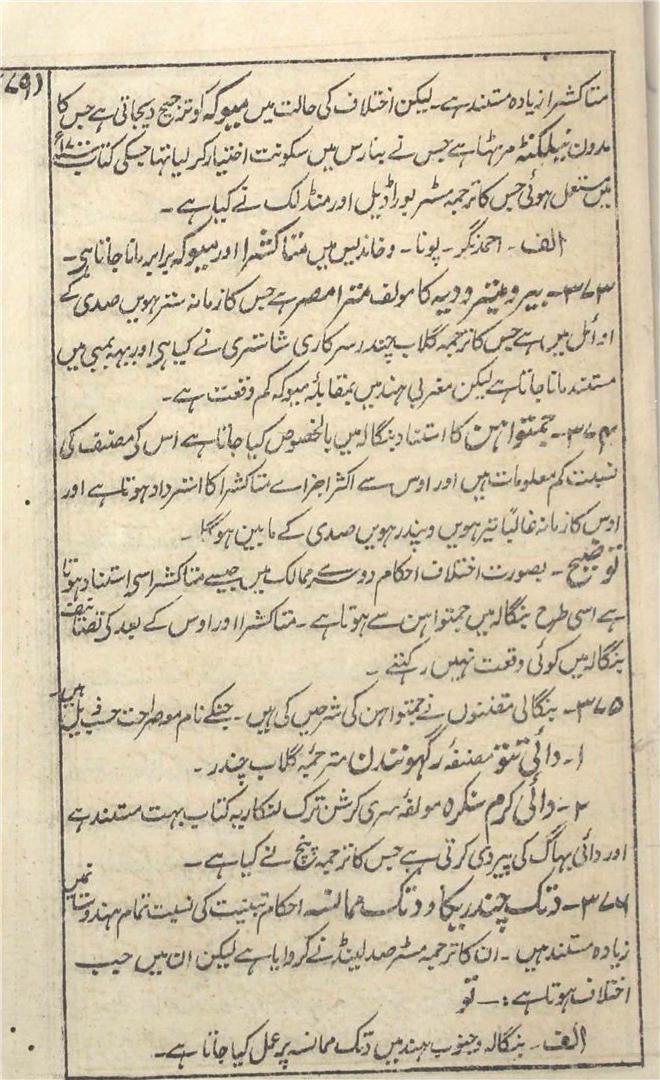 (٧٩)
متاکشرا زیادہ مستند ہے۔ لیکن اختلاف کی حالت میں میوکہ کو ترجیح دیجاتی ہے جس کا
مدون نیلکنٹھ مرہٹا ہے جس نے بنارس میں سکونت اختیار کر لیا تہا جسکی کتاب ۱۷۰۰ء
میں مستعمل ہوئی جس کا ترجمہ مسٹر بوراڈیل اور منڈلک نے کیا ہے۔
الف۔ احمدنگر۔ پونا۔ و خاندیس میں متاکشرا اور میوکہ برابر مانا جاتا ہی۔
۳۷۳۔ بیرومیترودیہ کا مولف مترا مصر ہے جس کا زمانہ سترہویں صدی کے
اوائل میں ہے جس کا ترجمہ گلاب چندر سرکاری شاستری نے کیا ہی اور یہہ بمبی میں
مستند مانا جاتا ہے لیکن مغربی ہند میں بمقابلۂ میوکہ کم وقعت ہے۔
۳۷۴۔ جمتواہن کا استناد بنگالہ میں بالخصوص کیا جاتا ہے اس کی مصنف کی
نسبت کم معلومات ہیں اور اوس سے اکثر اجزاے متاکشرا کا استرداد ہوتا ہے اور
اوس کا زمانہ غالباً تیرہویں و پندرہویں صدی کے مابین ہوگا۔
توضیح۔ بصورت اختلاف احکام دوسرے ممالک میں جیسے متاکشرا سی استناد ہوتا
ہے اسی طرح بنگالہ میں جمتواہن سے ہوتا ہے۔ متاکشرا اور اوس کے بعد کی تصانیف
بنگالہ میں کوئی وقعت نہیں رکتے۔
۳۷۵۔ بنگالی مقننوں نے جمتواہن کی شرحیں کی ہیں۔ جنکے نام معہ صراحت حسب ذیل ہیں
۱۔ دائی تتو مصنفۂ رگہونندن مترجمۂ گلاب چندر۔
۲۔ دائی کرم سنگرہ مولفۂ سری کرشن ترک لنکار یہ کتاب بہت مستند ہے
اور دائی بہاگ کی پیروی کرتی ہے جس کا ترجمہ پنچ نے کیا ہے۔
۳۷۶۔ دتک چندریکا و دتک ممانسہ احکام تبنیت کی نسبت تمام ہندوستان میں
زیادہ مستند ہیں۔ ان کا ترجمہ مسٹر صدلینڈ نے کروایا ہے لیکن ان میں جب
اختلاف ہوتا ہے :۔ تو
الف۔ بنگالہ و جنوب ہند میں دتک ممانسہ پر عمل کیا جاتا ہے۔